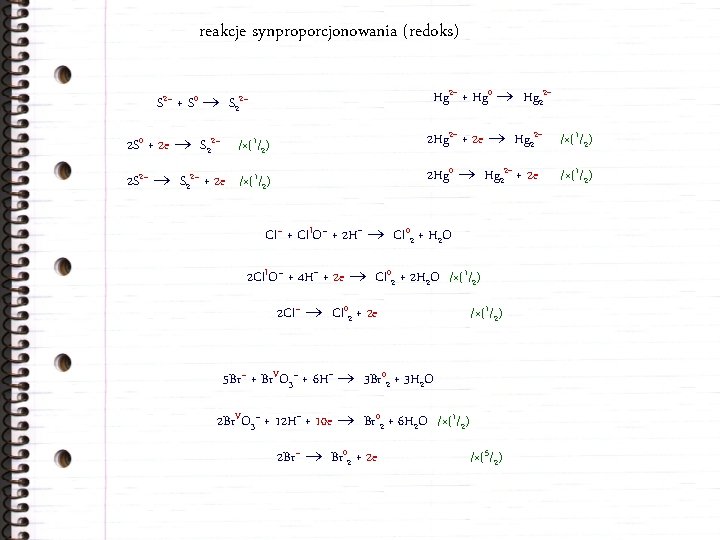 reakcje synproporcjonowania (redoks)
S²⁻ + S⁰ → S₂²⁻
2S⁰ + 2e → S₂²⁻ /×(¹/₂)
2S²⁻ → S₂²⁻ + 2e /×(¹/₂)
Hg²⁻ + Hg⁰ → Hg₂²⁻
2Hg²⁻ + 2e → Hg₂²⁻ /×(¹/₂)
2Hg⁰ → Hg₂²⁻ + 2e /×(¹/₂)
Cl⁻ + ClᴵO⁻ + 2H⁻ → Cl⁰₂ + H₂O
2ClᴵO⁻ + 4H⁻ + 2e → Cl⁰₂ + 2H₂O /×(¹/₂)
2Cl⁻ → Cl⁰₂ + 2e /×(¹/₂)
5Br⁻ + BrⱽO₃⁻ + 6H⁻ → 3Br⁰₂ + 3H₂O
2BrⱽO₃⁻ + 12H⁻ + 10e → Br⁰₂ + 6H₂O /×(¹/₂)
2Br⁻ → Br⁰₂ + 2e /×(⁵/₂)